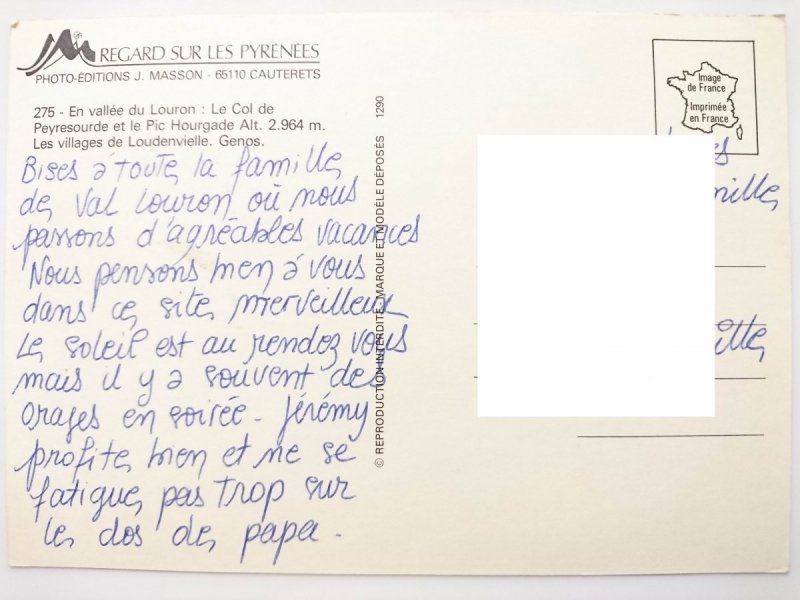 REGARD SUR LES PYRÉNÉES
PHOTO-ÉDITIONS J. MASSON - 65110 CAUTERETS
275 - En vallée du Louron : Le Col de
Peyresourde et le Pic Hourgade Alt. 2.964 m.
Les villages de Loudenvielle. Genos.
Bises à toute la famille
de Val Louron où nous
passons d'agréables vacances
Nous pensons bien à vous
dans ce site merveilleux
Le soleil est au rendez vous
mais il y a souvent des
orages en soirée - Jérémy
profite bien et ne se
fatigue pas trop sur
le dos de papa.
© REPRODUCTION INTERDITE - MARQUE ET MODÈLE DÉPOSÉS 1290
Image
de France
Imprimée
en France